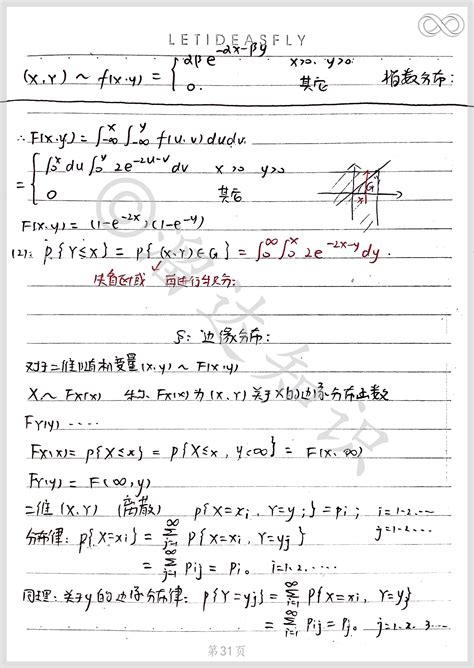 LETIDEASFLY
(X,Y) ~ f(x.y) = { αβe^-αx-βy x>0. y>0.
0. 其它 指数分布:
∴ F(x.y) = ∫-∞^x ∫-∞^y f(u,v)dudv.
= { ∫0^x du ∫0^y 2e^-2u-v dv x>0 y>0
0 其它
F(x.y) = (1-e^-2x)(1-e^-y)
(2): P{Y≤X} = P{(X,Y)∈G} = ∫0^∞∫0^x 2e^-2x-y dy.
积分:
§: 边缘分布:
对于二维随机变量(X,Y) ~ F(x.y)
X ~ Fx(x) 称 Fx(x) 为 (X,Y) 关于X的边缘分布函数
FY(y) ....
Fx(x) = P{X≤x} = P{X≤x, y<∞} = F(x,∞)
FY(y) = F(∞,y)
二维 (X,Y) (离散) P{X=xi, Y=yj} = Pij i=1.2....
j=1.2...
分布律: P{X=xi} = ∑j=1^∞ P{X=xi, Y=yj}
= ∑j=1^∞ Pij = Pi. i=1.2....
同理: 关于y的边缘分布律: P{Y=yj} = ∑i=1^∞ P{X=xi, Y=yj}
= ∑i=1^∞ Pij = Pj. j=1.2.3...
第31页
©溜达知识